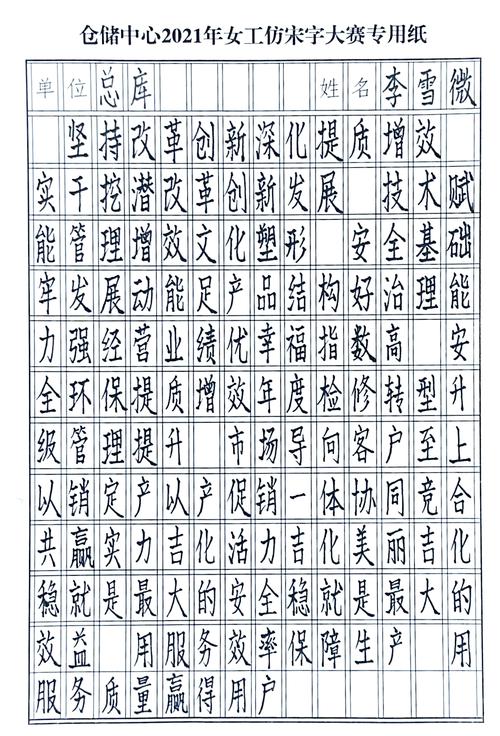 仓储中心2021年女工仿宋字大赛专用纸
单位总库 姓名李雪微
坚持改革创新深化提质增效
实干挖潜改革创新发展 技术赋
能管理增效文化塑形 安全基础
牢发展动能足产品结构好治理能
力强经营业绩优幸福指数高 安
全环保提质增效年度检修转型升
级管理提升 市场导向客户至上
以销定产以产促销一体协同竞合
共赢实力吉化活力吉化美丽吉化
稳就是最大的安全稳就是最大的
效益 用服务效率保障生产 用
服务质量赢得用户